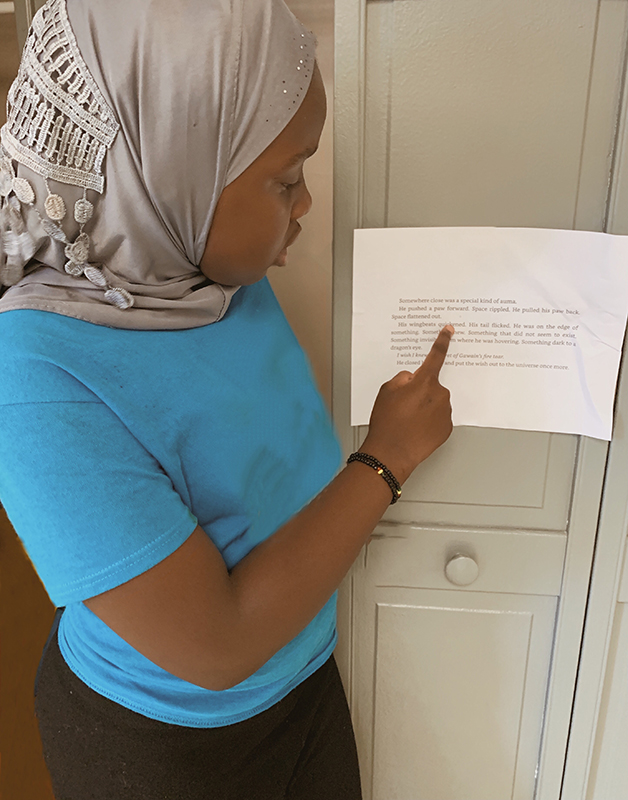 Somewhere close was a special kind of auma.
He pushed a paw forward. Space rippled. He pulled his paw back.
Space flattened out.
His wingbeats His tail flicked. He was on the edge of
something. new. Something that did not seem to exist.
Something where he was hovering. Something dark to a
dragon's eye.
I wish I knew of Gawain's fire tear.
He closed and put the wish out to the universe once more.